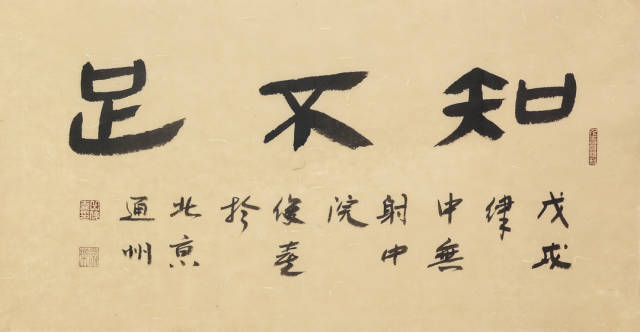 知不足
戊戌
律
中無
射中
浣
俊
於
北京
通州